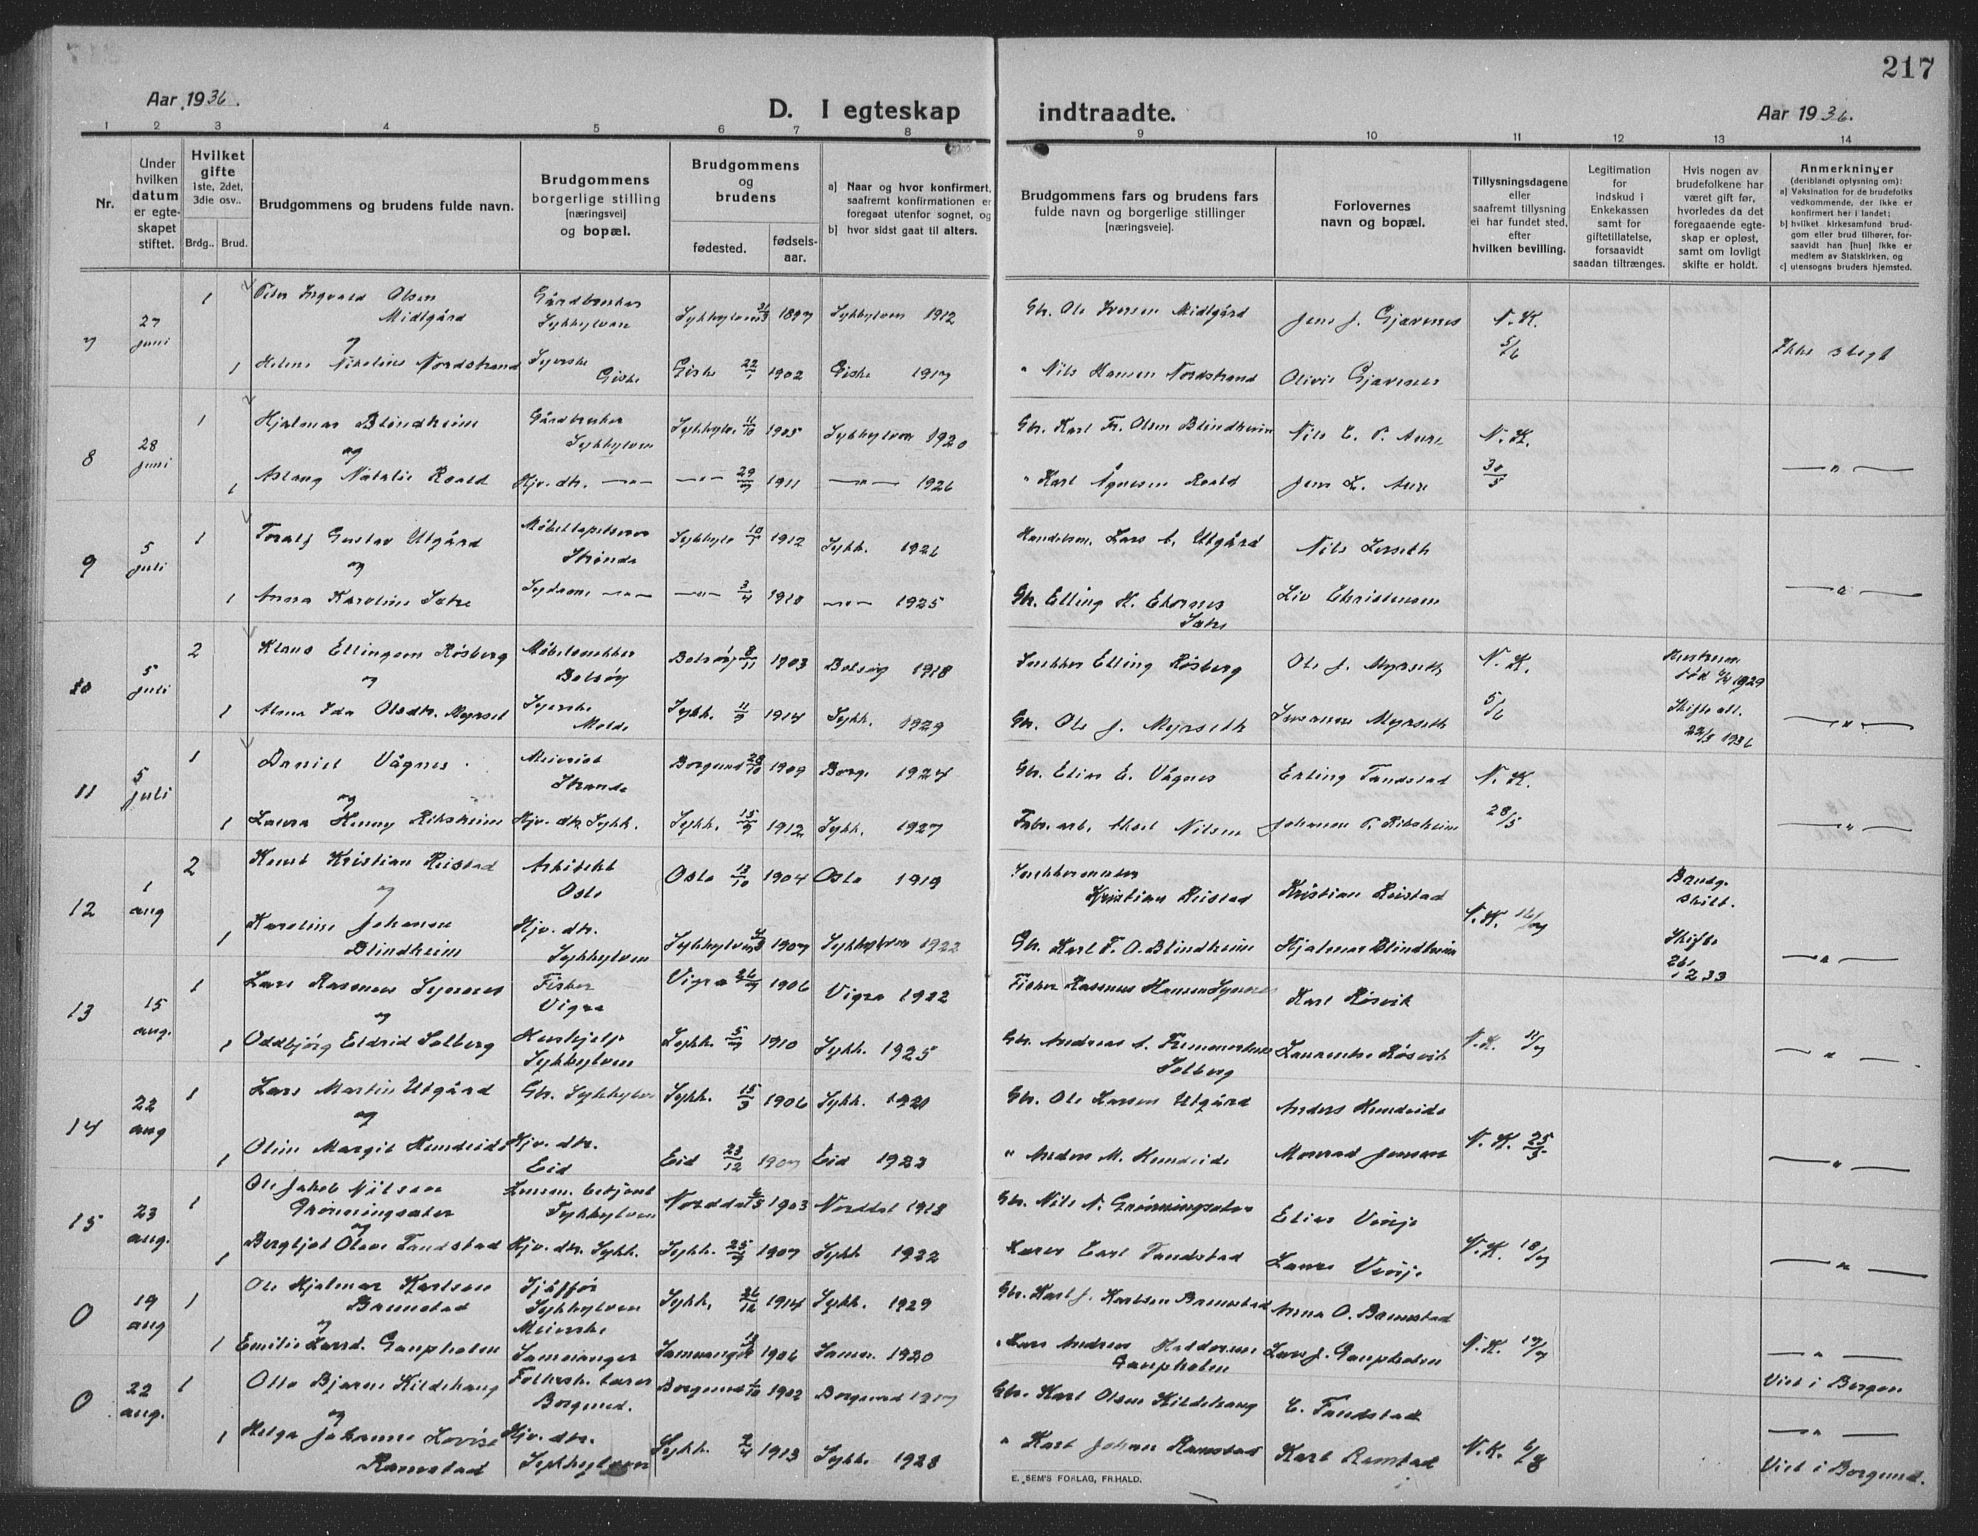 217
Aar 1936.
D. I egteskap indtraadte.
Aar 1936.
1 2 3 4 5 6 7 8 9 10 11 12 13 14
Nr.
Under hvilken datum er egte-skapet stiftet.
Hvilket gifte 1ste, 2det, 3die osv..
Brdg.. Brud.
Brudgommens og brudens fulde navn.
Brudgommens borgerlige stilling [næringsvei] og bopæl.
Brudgommens og brudens
fødested. fødsels-aar.
a] Naar og hvor konfirmert, saafremt konfirmationen er foregaat utenfor sognet, og
b] hvor sidst gaat til alters.
Brudgommens fars og brudens fars fulde navn og borgerlige stillinger [næringsveie].
Forlovernes navn og bopæl.
Tillysningsdagene eller saafremt tillysning ei har fundet sted, efter hvilken bevilling.
Legitimation for indskud i Enkekassen samt for giftetillatelse, forsaavidt saadan tiltrænges.
Hvis nogen av brudefolkene har været gift før, hvorledes da det foregaaende egte-skap er opløst, samt om lovligt skifte er holdt.
Anmerkninger (deriblandt oplysning om):
a] Vaksination for de brudefolks vedkommende, der ikke er konfirmert her i landet;
b] hvilket kirkesamfund brud-gom eller brud tilhører, for-saavidt han [hun] ikke er medlem av Statskirken, og
c] utensogns bruders hjemsted.
7 27 juni 1 Peter Ingvald Olsen Midtgård Gårdbruker Sykkylven Sykkylven 31/3 1897 Sykkylven 1912 Gbr. Ole Iversen Midtgård Jens J. Gjævenes N. K. 5/6
og
1 Helene Nikoline Nordstrand Syerske Giske Giske 22/1 1902 Giske 1917 " Nils Hansen Nordstrand Olivie Gjævenes Ikke slegt
8 28 juni 1 Hjalmar Blindheim Gårdbruker Sykkylven Sykkylv 11/10 1905 Sykkylven 1920 Gbr. Karl Fr. Olsen Blindheim Nils E. P. Aure N. K. 30/5
og
1 Aslaug Natalie Roald Hjv. dtr. —"— —"— 29/7 1911 —"— 1926 " Karl Ågesen Roald Jens L. Aure —"—
9 5 juli 1 Toralf Gustav Utgård Møbeltapetserer Stranda Sykkylv 10/1 1912 Sykk. 1926 Handelsm. Lars A. Utgård Nils Lerseth
og
1 Anna Karoline Satre Sydame —"— —"— 3/4 1910 —"— 1925 Gbr. Elling K. Ekornes Satre Liv Christensen —"—
10 5 juli 2 Klaus Ellingsen Røsberg Møbelsnekker Bolsøy Bolsøy 8/11 1903 Bolsøy 1918 Snekker Elling Røsberg Ole J. Myrseth N. K. 5/6 Hustruen død 1929
og
1 Alma Ida Olsdtr. Myrset Syerske Molde Sykk. 11/9 1914 Sykk. 1929 Gbr. Ole J. Myrseth Susanne Myrseth Skifte att. 22/5 1936 —"—
11 5 juli 1 Daniel Vågnes Meierist Stranda Borgund 28/10 1909 Borg. 1924 Gbr. Elias E. Vågnes Erling Tandstad N. K. 28/5
og
1 Laura Henny Riksheim Hjv. dtr. Sykk. Sykk. 15/9 1912 Sykk. 1927 Fabr. arb. Nilsen Johanne P. Riksheim —"—
12 1 aug 2 Knut Kristian Reistad Arkitekt Oslo Oslo 13/10 1904 Oslo 1919 Snekkermester Kristian Reistad Kristian Reistad N. K. 16/7 Brudg. skilt.
og
1 Karoline Johanne Blindheim Hjv. dtr. Sykkylven Sykkylven 4/3 1907 Sykkylven 1922 Gbr. Karl F. O. Blindheim Hjalmar Blindheim Skifte —"—
13 15 aug. 1 Lars Rasmus Synnes Fisker Vigra Vigra 26/7 1906 Vigra 1922 Fisker Rasmus Hansen Synnes Karl Røsvik
og
1 Oddbjørg Eldrid Solberg Hushjelp Sykkylven Sykk. 5/7 1910 Sykk. 1925 Gbr. Andreas A. Solberg Laurentse Røsvik N. K. 11/7 —"—
14 22 aug 1 Lars Martin Utgård Gbr. Sykkylven Sykk. 15/3 1906 Sykk. 1920 Gbr. Ole Larsen Utgård Anders Hundeide
og
1 Oline Margit Hundeide Hjv. dtr. Eid Eid 23/12 1907 Eid 1923 " Anders M. Hundeide Monrad Jensen N. K. 25/5 —"—
15 23 aug. 1 Ole Jakob Nilsen Grønningsæter Lensm. betjent Sykkylven Norddal 1903 Norddal 1918 Gbr. Nils N. Grønningsæter Elias Vinje
og
1 Bergljot Olave Tandstad Hjv. dtr. Sykk. Sykk. 25/7 1907 Sykk 1922 Lærer Carl Tandstad Laura Vinje N. K. 18/7 —"—
0 19 aug 1 Ole Hjalmar Karlsen Bramstad Sjåffør Sykkylven Sykk. 26/12 1914 Sykk. 1929 Gbr. Karl J. Karlsen Bramstad Anna O. Bramstad
og
1 Emilie Larsd. Gaupholm Meierske Samnanger Samnanger 1906 Samn. 1920 " Lars Andreas Haldorsen Gaupholm Lars J. Gaupholm N. K. 17/7 —"— Viet i Bergen
0 22 aug. 1 Otto Bjarne Kildehaug Folkesk. lærer Borgund. Borgund 6/10 1902 Borgund 1917 Gbr. Karl Olsen Kildehaug C. Tandstad
og
1 Helga Johanne Lovise Ramstad Hjv. dtr. Sykkylven Sykk. 2/4 1913 Sykk. 1928 " Karl Johan Ramstad Karl Ramstad N. K. 6/8 —"— Viet i Borgund.
E. SEM'S FORLAG, FR.HALD.